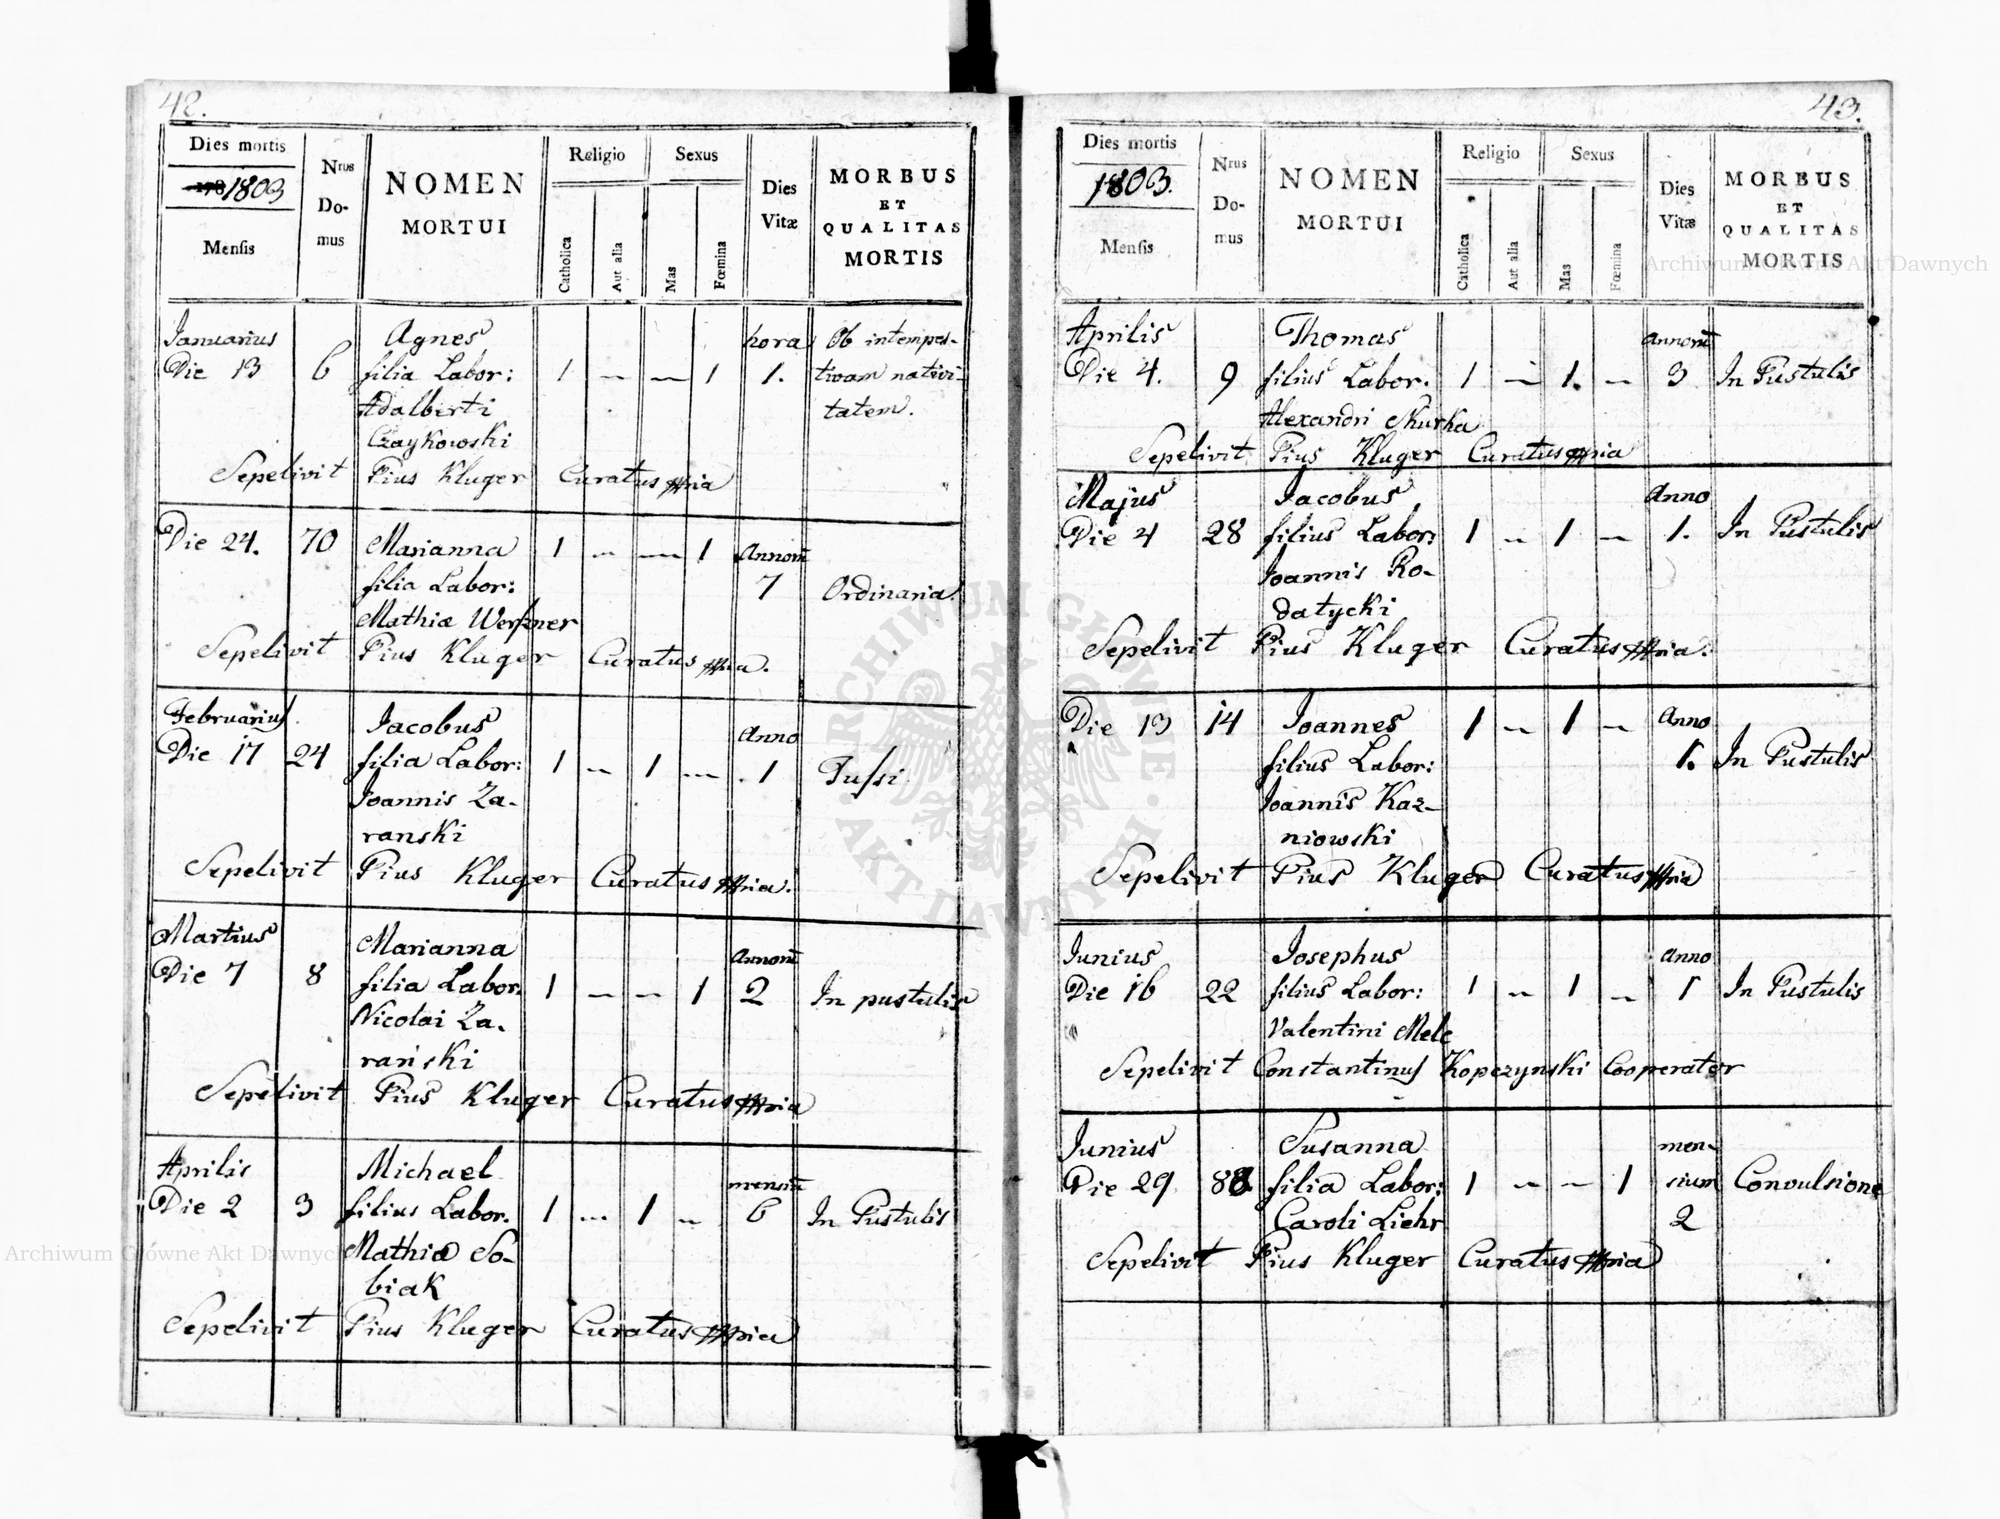 42.
Dies mortis
1803
Mensis
Nrus
Do-
mus
NOMEN
MORTUI
Religio
Catholica
Aut alia
Sexus
Mas
Fœmina
Dies
Vitæ
MORBUS
ET
QUALITAS
MORTIS
Januarius Agnes hora Ob intempes-
Die 13 6 filia Labor: 1 — — 1 1. tivam nativi-
Adalberti tatem.
Czaykowski
Sepelivit Pius Kluger Curatus mpria
Die 24. 70 Marianna 1 — — 1 Annorũ
filia Labor: 7 Ordinaria.
Mathiæ Werszner
Sepelivit Pius Kluger Curatus mpria.
Februarius Jacobus Anno
Die 17 24 filia Labor: 1 — 1 — 1 Tussi
Joannis Za-
ranski
Sepelivit Pius Kluger Curatus mpria.
Martius Marianna Annorũ
Die 7 8 filia Labor: 1 — — 1 2 In pustulis
Nicolai Za-
rański
Sepelivit Pius Kluger Curatus mpria
Aprilis Michael mensiũ
Die 2 3 filius Labor. 1 — 1 — 6 In Pustulis
Mathiæ So-
biak
Sepelivit Pius Kluger Curatus mpria
43.
Dies mortis
1803.
Mensis
Nrus
Do-
mus
NOMEN
MORTUI
Religio
Catholica
Aut alia
Sexus
Mas
Fœmina
Dies
Vitæ
MORBUS
ET
QUALITAS
MORTIS
Aprilis Thomas Annorũ
Die 4. 9 filius Labor. 1 — 1. — 3 In Pustulis
Alexandri Skurka
Sepelivit Pius Kluger Curatus mpria
Majus Jacobus Anno
Die 4 28 filius Labor: 1 — 1 — 1. In Pustulis
Joannis Ro-
datycki
Sepelivit Pius Kluger Curatus mpria.
Die 13 14 Joannes 1 — 1 — Anno
filius Labor: 1. In Pustulis
Joannis Kaz-
niowski
Sepelivit Pius Kluger Curatus mpria
Junius Josephus Anno
Die 16 22 filius Labor: 1 — 1 — 1 In Pustulis
Valentini Melc
Sepelivit Constantinus Kopczynski Cooperator
Junius Susanna men-
Die 29 88 filia Labor: 1 — — 1 sium Convulsione
Caroli Liehr 2
Sepelivit Pius Kluger Curatus mpria
Archiwum Główne Akt Dawnych
Archiwum Główne Akt Dawnych
ARCHIWUM GŁÓWNE · AKT DAWNYCH ·